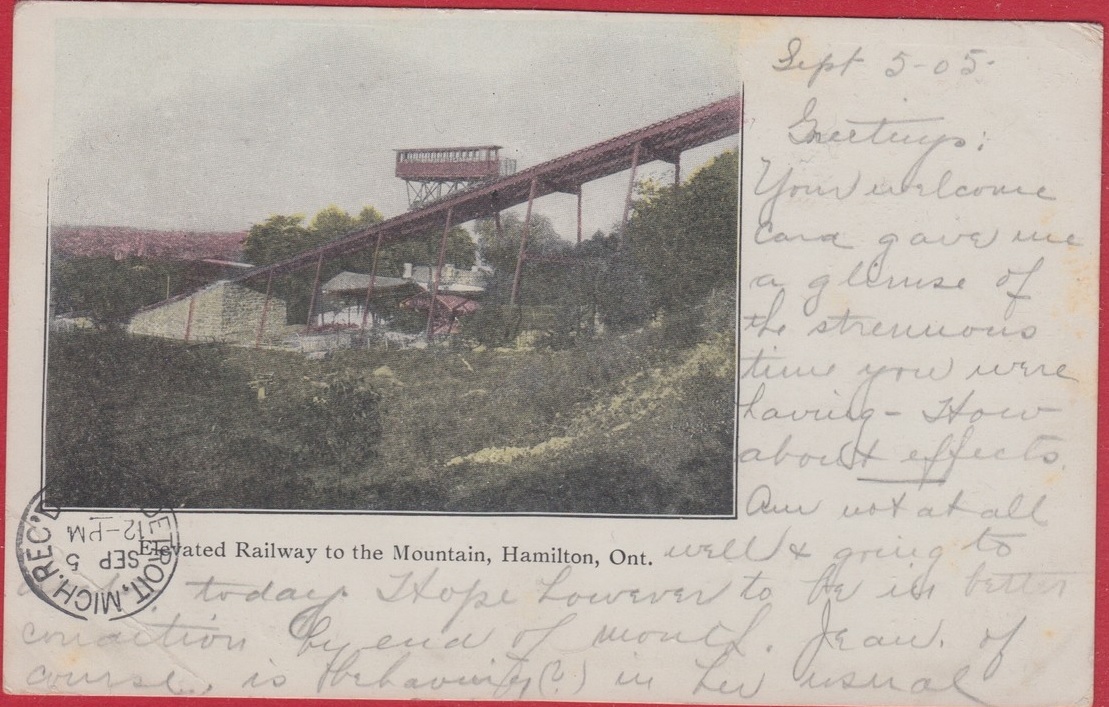 Sept 5-05.
Greetings:
Your welcome
card gave me
a glimse of
the strenuous
time you were
having - How
about effects.
Am not at all
Elevated Railway to the Mountain, Hamilton, Ont.
well & going to
today. Hope however to be in better
condition by end of month. Jean, of
course, is behaving(?) in her usual
DETROIT, MICH. REC'D
SEP 5
12-PM